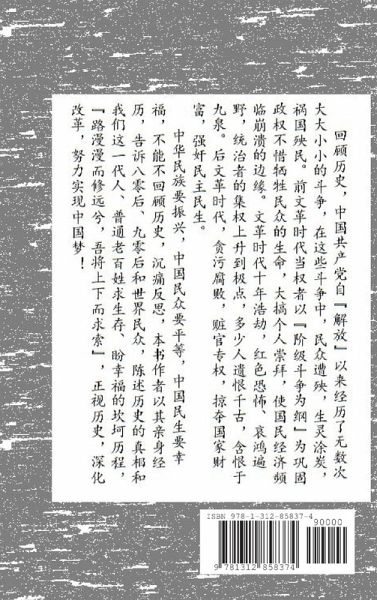 回顾历史，中国共产党自『解放』以来经历了无数次
大大小小的斗争，在这些斗争中，民众遭殃，生灵涂炭，
祸国殃民。前文革时代当权者以『阶级斗争为纲』为巩固
政权不惜牺牲民众的生命，大搞个人崇拜，使国民经济频
临崩溃的边缘。文革时代十年浩劫，红色恐怖、哀鸿遍
野，统治者的集权上升到极点，多少人遗恨千古，含恨于
九泉。后文革时代，贪污腐败，赃官专权，掠夺国家财
富，强奸民主民生。
中华民族要振兴，中国民众要平等，中国民生要幸
福，不能不回顾历史，沉痛反思，本书作者以其亲身经
历，告诉八零后、九零后和世界民众，陈述历史的真相和
我们这一代人、普通老百姓求生存、盼幸福的坎坷历程，
『路漫漫而修远兮，吾将上下而求索』，正视历史，深化
改革，努力实现中国梦！
ISBN 978-1-312-85837-4
90000
9 781312 858374